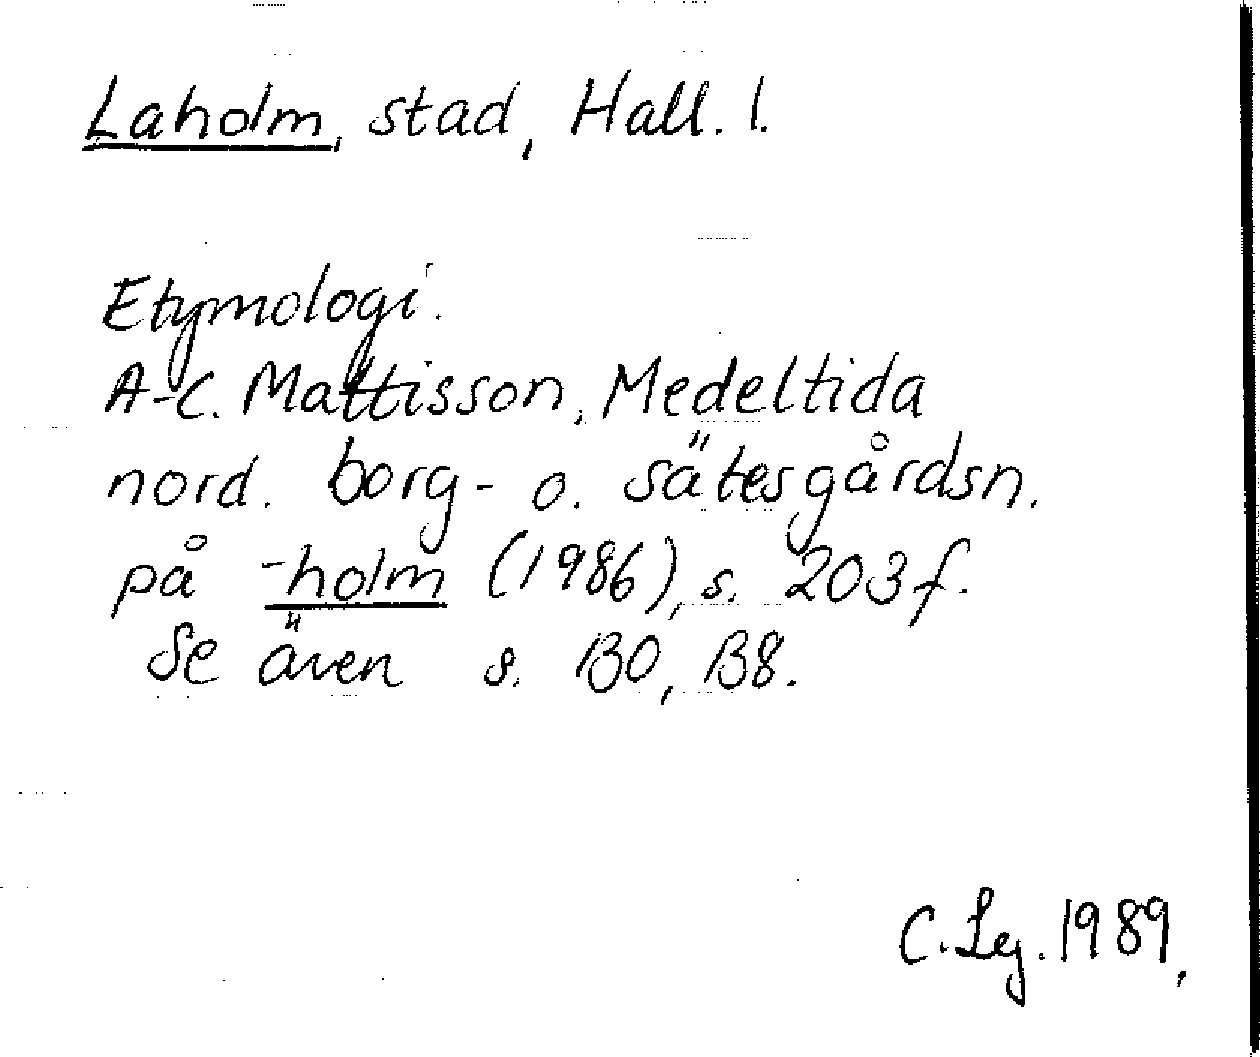 Laholm, stad, Hall. l.
Etymologi.
A-C. Mattisson, Medeltida
nord. borg- o. sätesgårdsn.
på -holm (1986), s. 203f.
Se även s. 130, 138.
C. Lej. 1989.